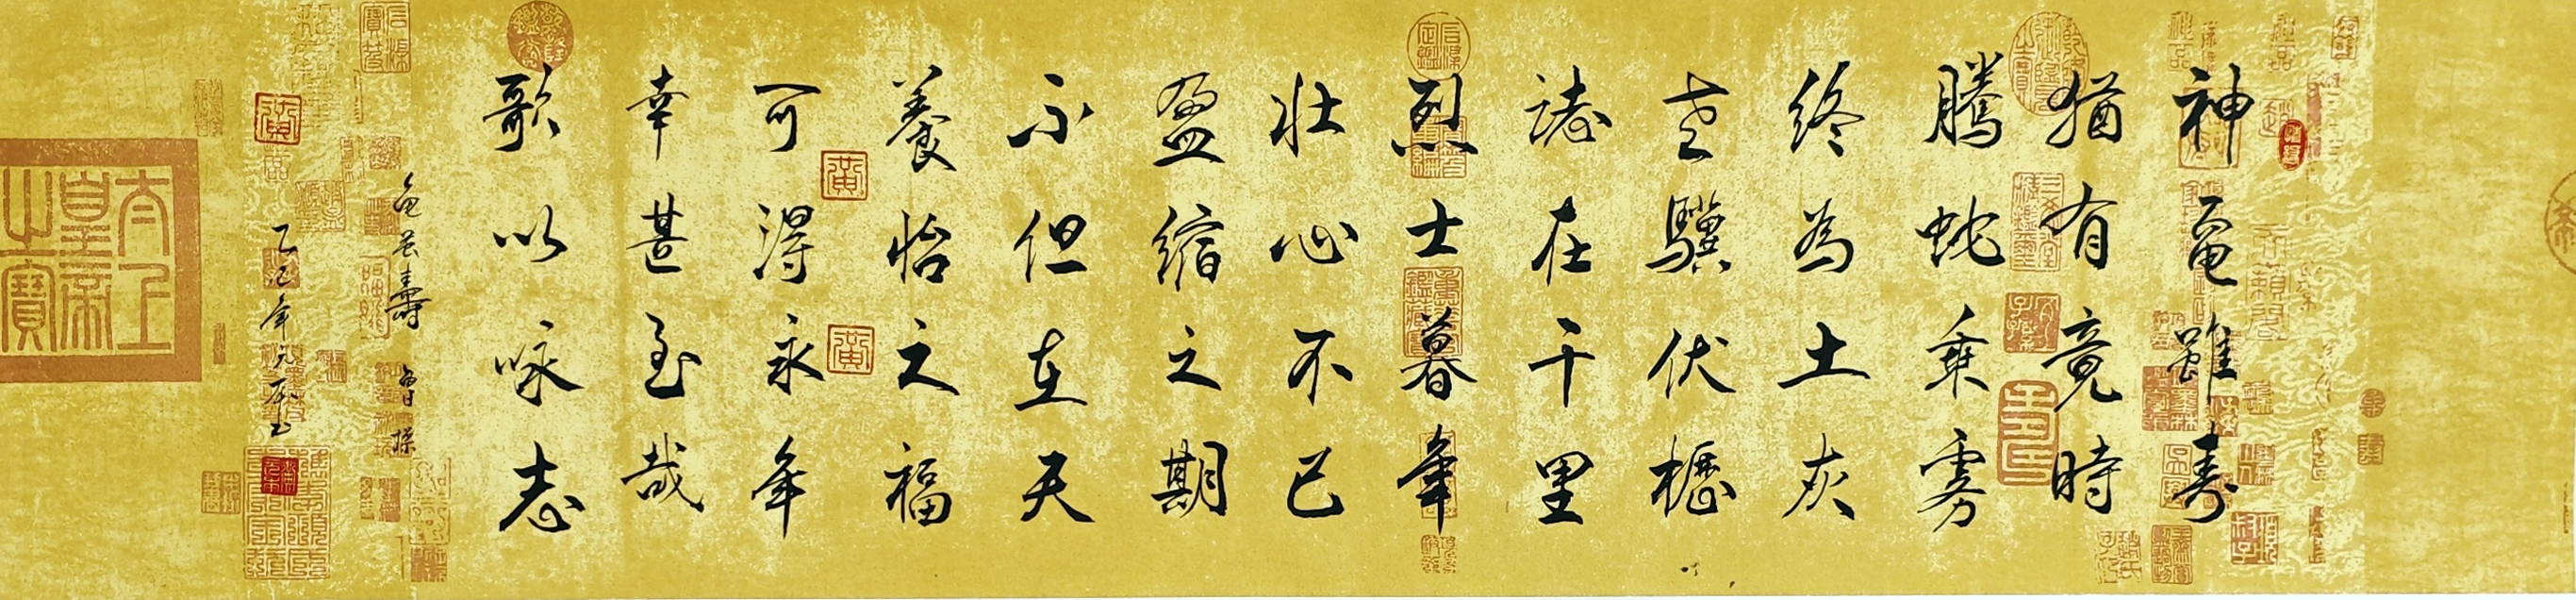 神龜雖壽
猶有竟時
騰蛇乘霧
終為土灰
老驥伏櫪
誌在千里
烈士暮年
壯心不已
盈縮之期
不但在天
養怡之福
可得永年
幸甚至哉
歌以咏志
龜虽壽 曹操
乙巳年
太上皇帝之寶